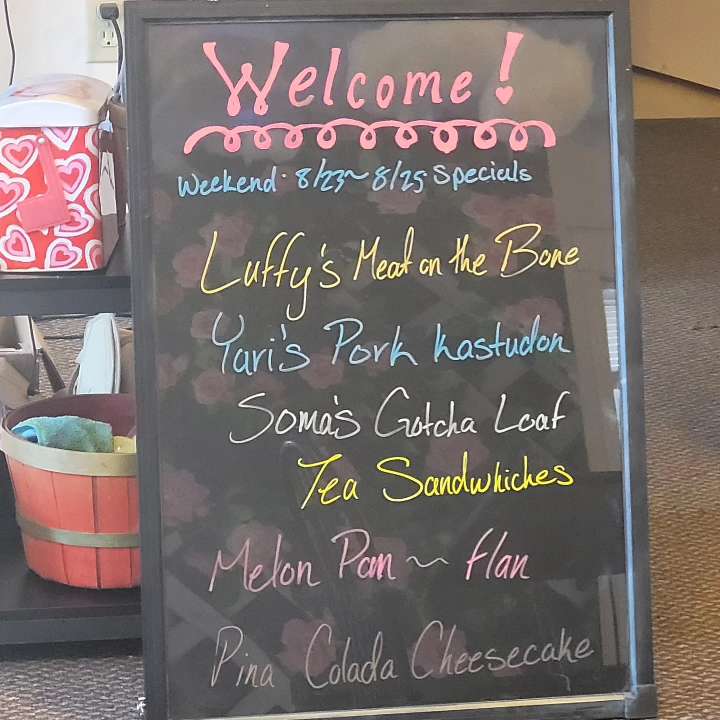 Welcome!
Weekend · 8/23~8/25 Specials
Luffy's Meat on the Bone
Yuri's Pork kastudon
Soma's Gotcha Loaf
Tea Sandwhiches
Melon Pan ~ flan
Pina Colada Cheesecake